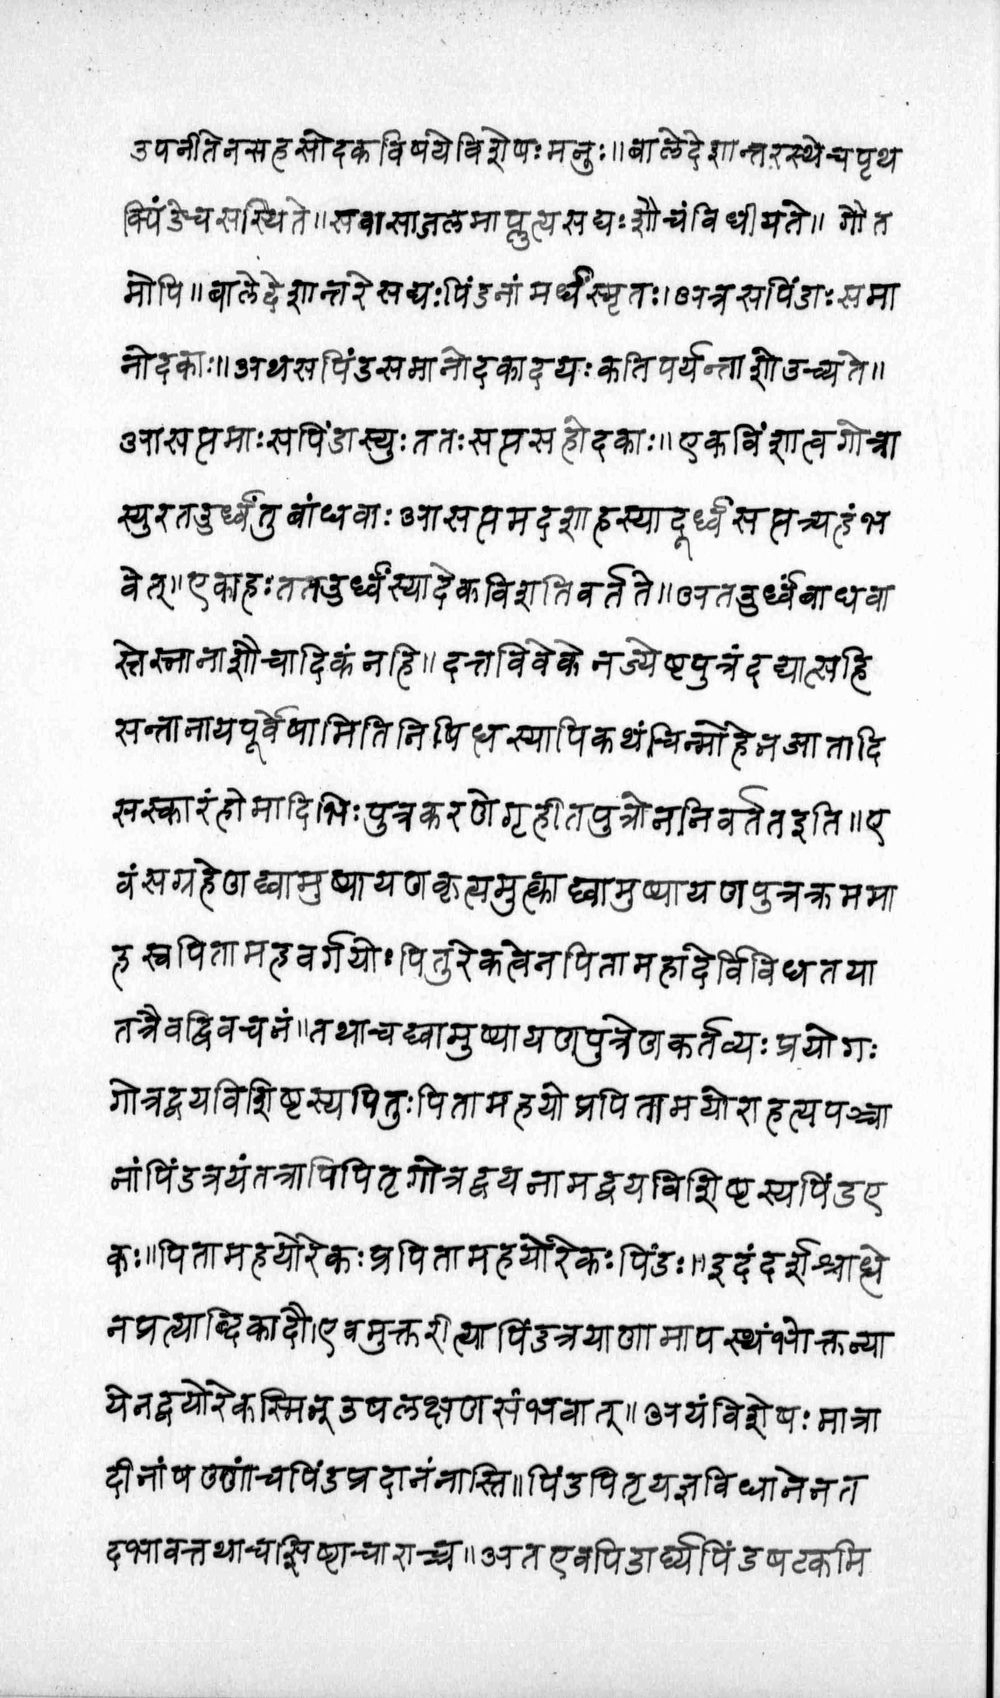 उपनीतेनसहसोदकविषयेविशेषःमनुः॥बालेदेशान्तरस्थेचपृथ
क्पिंडेचसस्थिते॥सवासाजलमाप्लुत्यसद्यःशौचंविधीयते॥ गौत
मोपि॥बालेदेशान्तरेसद्यःपिंडनांमर्धंस्मृतः।अत्रसपिंडाःसमा
नोदकाः॥अथसपिंडसमानोदकादयःकतिपर्यन्ताशेउच्यते॥
आसप्तमाःसपिंडास्युःततःसप्तसहोदकाः॥एकविंशात्वगोत्रा
स्युरतदुर्ध्वंतुबांधवाःआसप्तमदशाहस्यादूर्ध्वंसप्तत्र्यहंभ
वेत्॥एकाहःततदुर्ध्वंस्यादेकविशतिवर्तते॥अतदुर्ध्वंबाधवा
स्तेस्नानाशौचादिकंनहि॥दत्तविवेकेनज्येष्टपुत्रंदद्यात्सहि
सन्तानायपूर्वेषामितिनिषिधस्यापिकथंचिन्मोहेनआतादि
सस्कारंहोमादिभिःपुत्रकरणेगृहीतपुत्रोननिवर्ततइति॥ए
वंसग्रहेणद्वामुष्यायणकृत्यमुत्काद्वामुष्यायणपुत्रक्रममा
हस्वपितामहवर्गयोःपितुरेकत्वेनपितामहादेर्विविधतया
तत्रैवद्विवचनं॥तथाचद्वामुष्यायणपुत्रेणकर्तव्यःप्रयोगः
गोत्रद्वयविशिष्टस्यपितुःपितामहयोप्रपितामयोराहत्यपञ्चा
नांपिंडत्रयंतत्रापिपितृगोत्रद्वयनामद्वयविशिष्टस्यपिंडए
कः॥पितामहयोरेकःप्रपितामहयोरेकःपिंडः॥इदंदर्शश्राध्धे
नप्रत्याब्दिकादौ।एवमुक्तरीत्यापिंडत्रयाणामापस्थंभोक्तन्या
येनद्वयोरेकस्मिन्उषलक्षणसंभवात्॥अयंविशेषःमात्रा
दीनांषण्णांचपिंडप्रदानंनास्ति॥पिंडपितृयज्ञविधानेनत
दभावत्तथाचशिष्टाचाराच्च॥अतएवपिडार्घ्यपिंडषटकमि